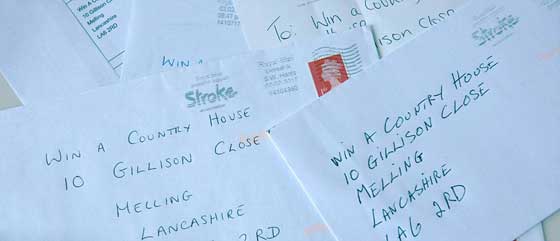 Win A
10 Gillison
Melling
Lancashire
LA6 2RD
WIN A
To: Win a Cou
ison Close
Stroke
Royal Mail
WIN A COUNTRY HOUSE
10 GILLISON CLOSE
MELLING
LANCASHIRE
2RD
Stroke
WIN A COUNTRY HOUSE
10 GILLISON CLOSE
MELLING
LANCASHIRE
LA6 2RD